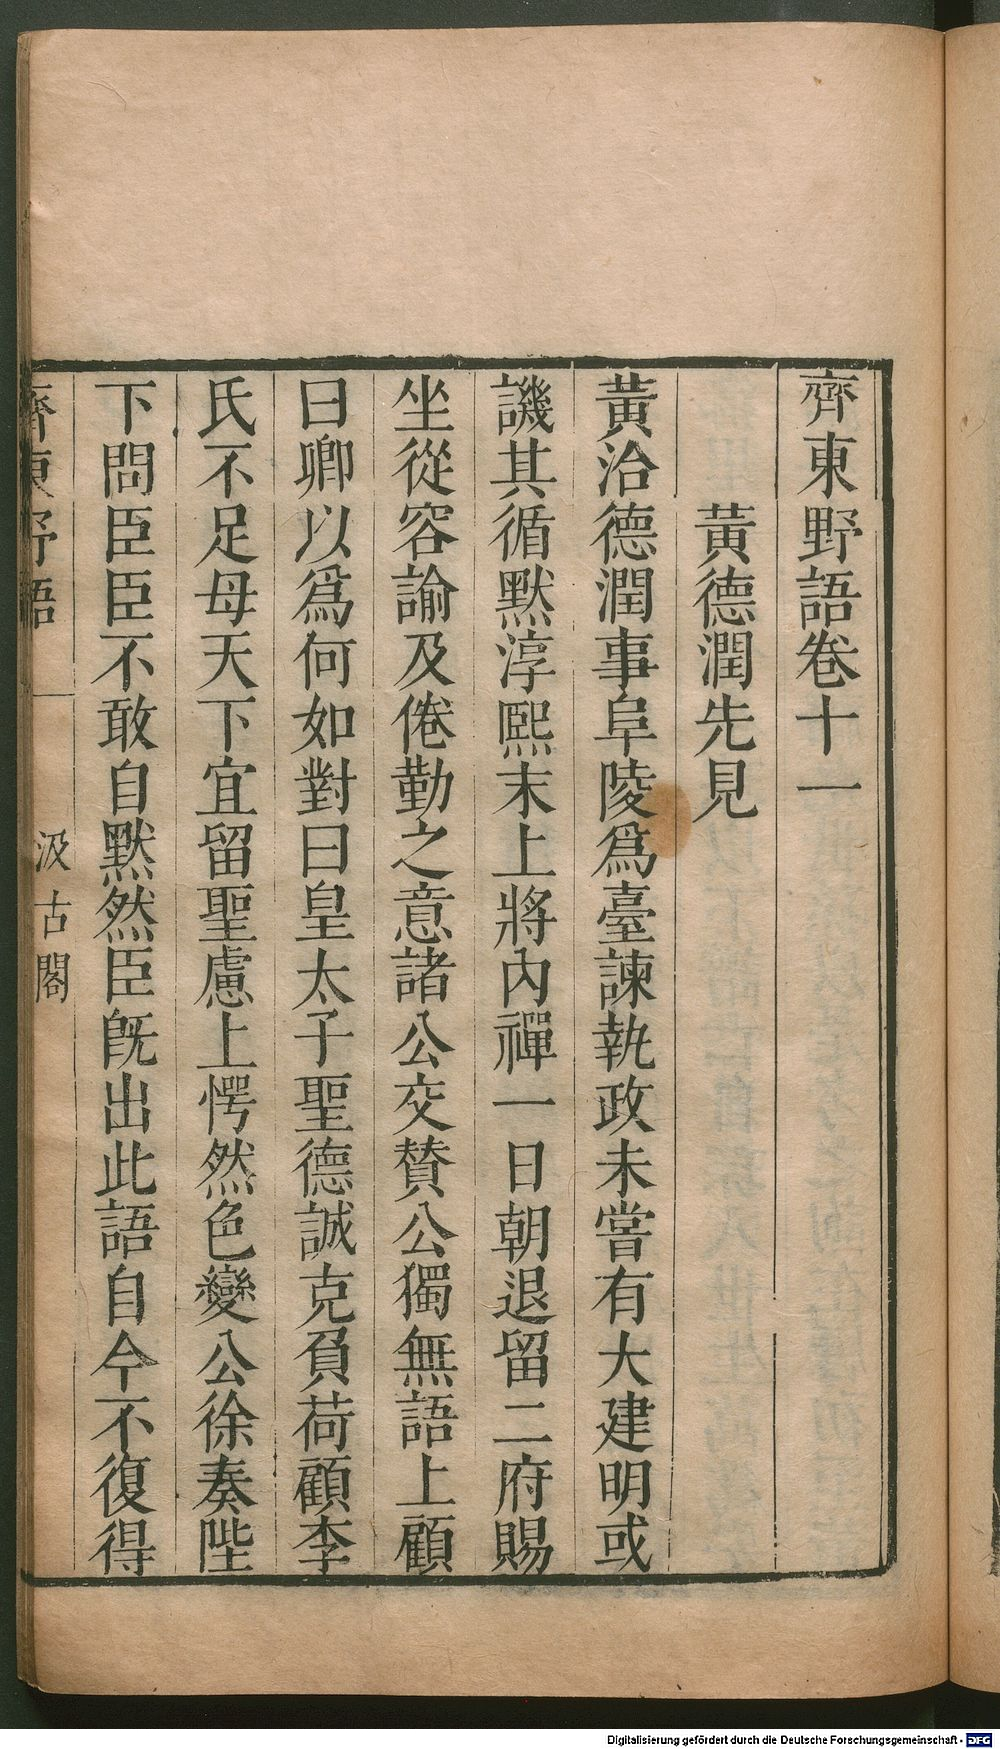 齊東野語卷十一
黃德潤先見
黃洽德潤事阜陵爲臺諫執政未嘗有大建明或
譏其循默淳熙末上將內禪一日朝退留二府賜
坐從容諭及倦勤之意諸公交賛公獨無語上顧
曰卿以爲何如對曰皇太子聖德誠克負荷顧李
氏不足母天下宜留聖慮上愕然色變公徐奏陛
下問臣臣不敢自黙然臣旣出此語自今不復得
齊東野語 一 汲古閣
Digitalisierung gefördert durch die Deutsche Forschungsgemeinschaft - DFG